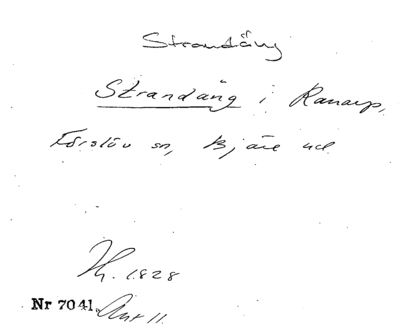 Strandäng
Strandäng i Ranarp,
Förslöv sn, Bjäre hd
Hg. 1828
Nr 7041. Ant 11.